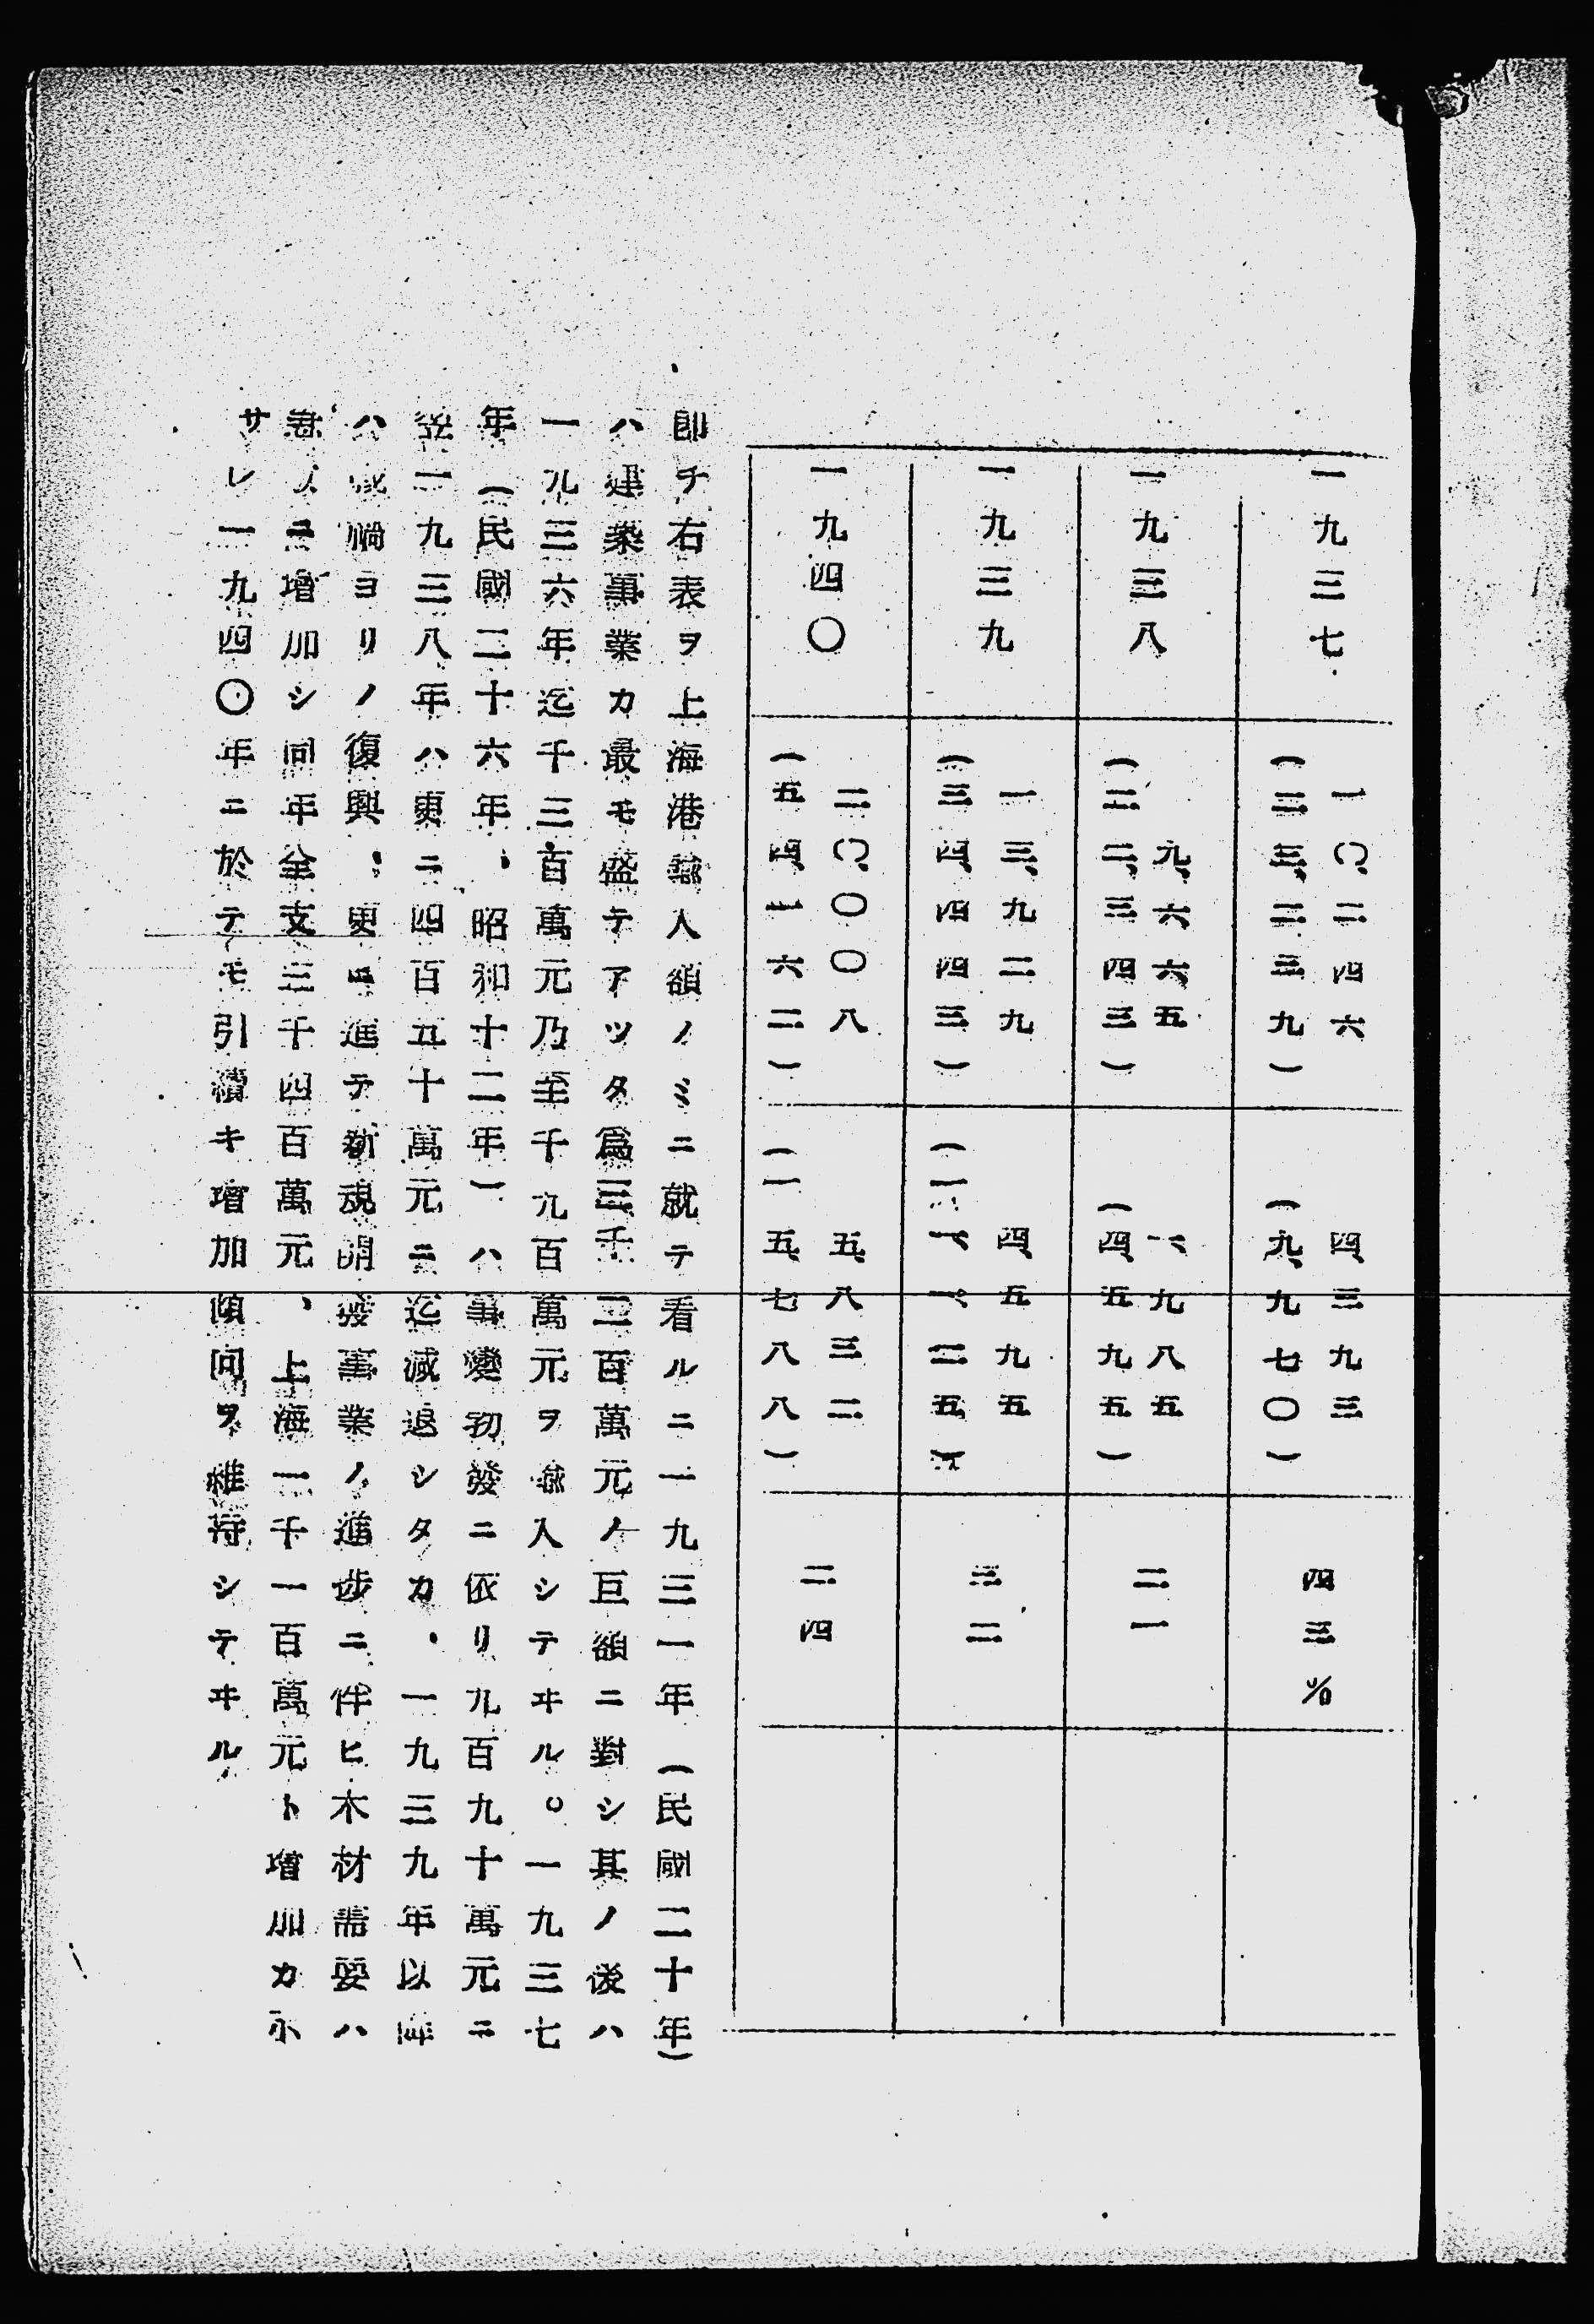 一九三七
一〇、二四六
(二三、二三九)
四、三九三
(九、九七〇)
四三%
一九三八
九、六六五
(二二、三四三)
一、九八五
(四、五九五)
二一
一九三九
一三、九二九
(三四、四四三)
四、五九五
(一一、一二五)
三二
一九四〇
二〇、〇〇八
(五四、一六二)
五、八三二
(一五、七八八)
二四
即チ右表ヲ上海港輸入額ノミニ就テ看ルニ一九三一年(民國二十年)
ハ建築事業カ最モ盛テアツタ爲三千二百萬元ノ巨額ニ對シ其ノ後ハ
一九三六年迄千三百萬元乃至千九百萬元ヲ輸入シテヰル。一九三七
年(民國二十六年、昭和十二年)ハ事變勃發ニ依リ九百九十萬元ニ
翌一九三八年ハ更ニ四百五十萬元ニ迄減退シタカ、一九三九年以降
ハ戰禍ヨリノ復興、更ニ進テ新規開發事業ノ進歩ニ伴ヒ木材需要ハ
ニ增加シ同年全支三千四百萬元、上海一千一百萬元ト增加カ示
サレ一九四〇年ニ於テモ引續キ增加傾向ヲ維持シテヰル